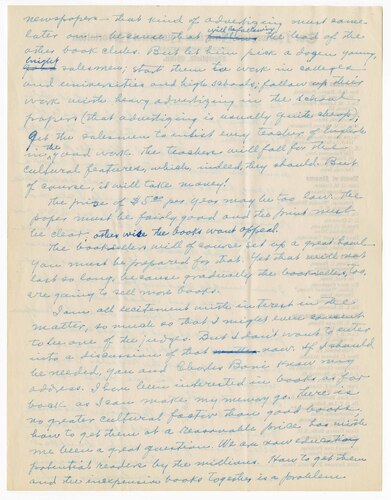 newspapers - that kind of advertizing must come
later on, because that will be following the lead of the
other book clubs. But let him pick a dozen young,
bright salesmen; start them to work in colleges
and universities and high schools; follow up their
work with heavy advertizing in the school
papers (that advertizing is usually quite cheap),
get the salesmen to enlist every teacher of English
in the good work. The teachers will fall for the
cultural features, which, indeed, they should. But
of course, it will take money!
The price of $5.00 per year may be too low. The
paper must be fairly good and the print must
be clear, otherwise the books won't appeal.
The booksellers will of course set up a great howl.
You must be prepared for that. Yet that will not
last so long, because gradually the booksellers, too,
are going to sell more books.
I am all excitement with interest in the
matter, so much so that I might even consent
to be one of the judges. But I don't want to enter
into a discussion of that now. If I should
be needed, you and Charles Boni know my
address. I have been interested in books as far
back as I can make my memory go. There is
no greater cultural factor than good books;
how to get them at a reasonable price has with
me been a great question. We are now educating
potential readers by the millions. How to get them
and the inexpensive books together is a problem